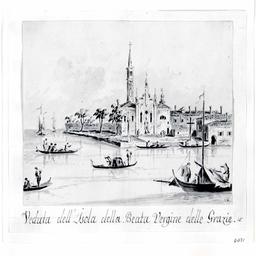 Veduta dell'Isola della Beata Vergine delle Grazie.